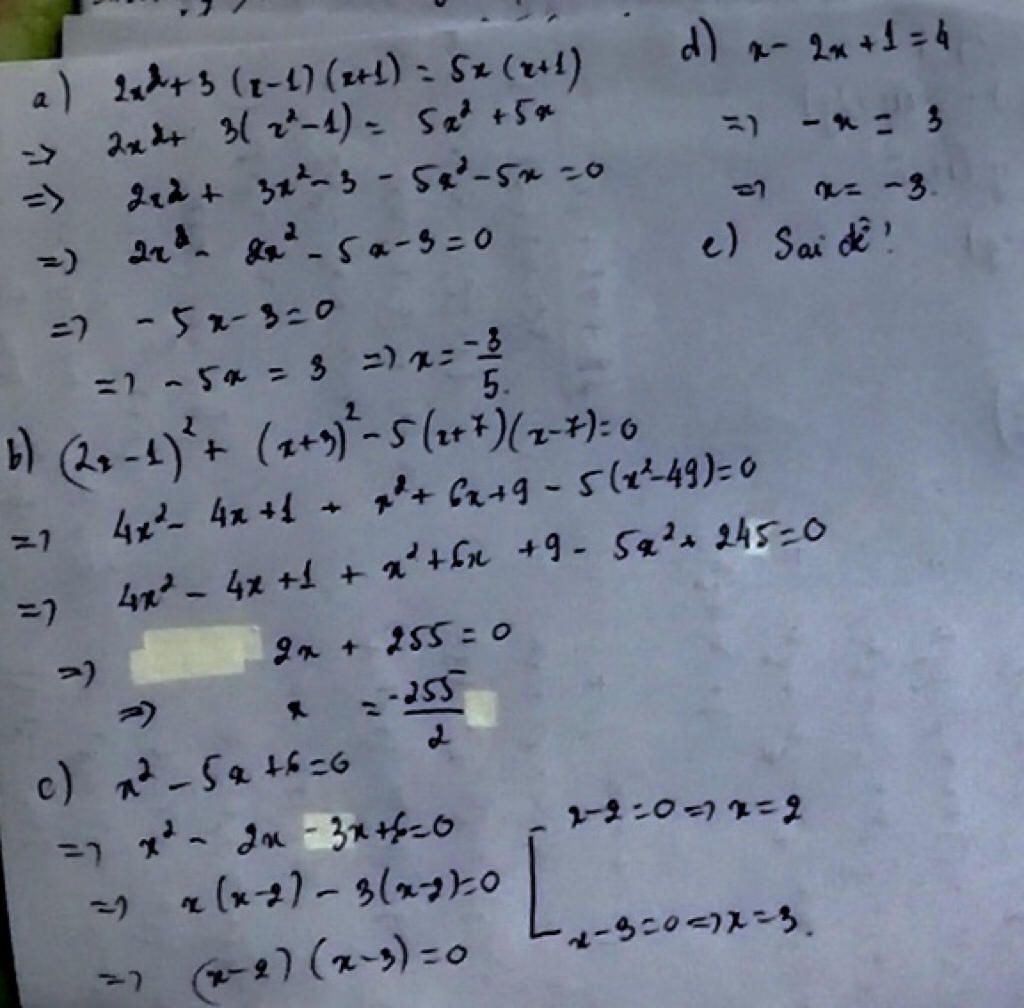 a) 2x² + 3 (x-1) (x+1) = 5x (x+1)
=> 2x² + 3( x² - 1) = 5x² + 5x
=> 2x² + 3x² - 3 - 5x² - 5x = 0
=> 2x² - 2x² - 5x - 3 = 0
=> - 5x - 3 = 0
=> - 5x = 3 => x = -3/5.
b) (2x - 1)² + (x+3)² - 5 (x+7) (x-7) = 0
=> 4x² - 4x + 1 + x² + 6x + 9 - 5 (x² - 49) = 0
=> 4x² - 4x + 1 + x² + 6x + 9 - 5x² + 245 = 0
=> 2x + 255 = 0
=> x = -255/2
c) x² - 5x + 6 = 0
=> x² - 2x - 3x + 6 = 0
=> x (x-2) - 3 (x-2) = 0
=> (x-2) (x-3) = 0
x - 2 = 0 => x = 2
x - 3 = 0 => x = 3.
d) x - 2x + 1 = 4
=> - x = 3
=> x = -3.
e) Sai đề!